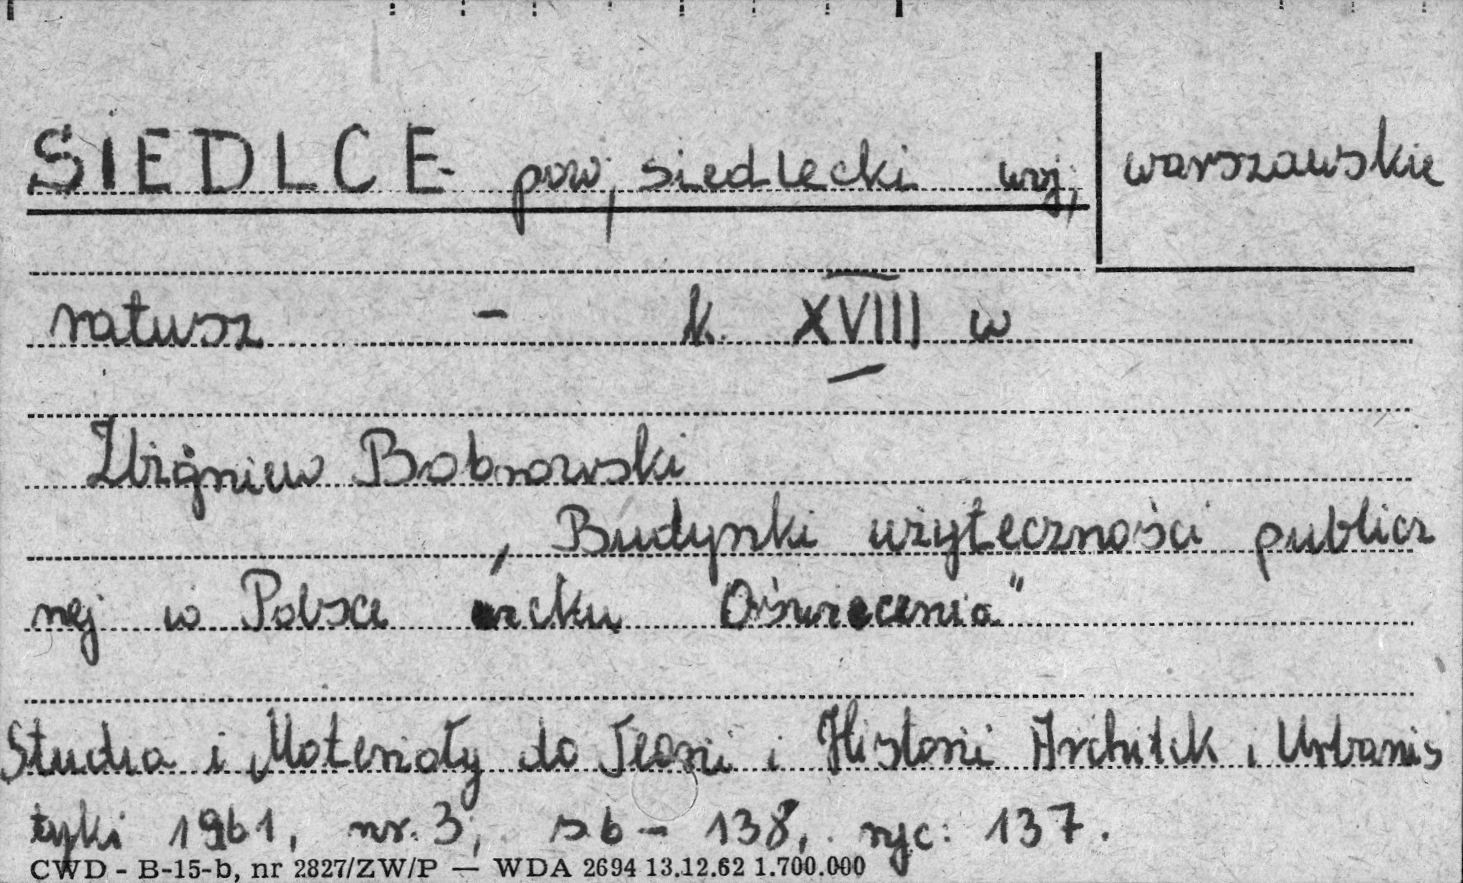 SIEDLCE pow, siedlecki woj, warszawskie
ratusz - k. XVIII w
Zbigniew Bobrowski
, Budynki użyteczności publicz
nej w Polsce wieku Oświecenia"
Studia i Materiały do Teorii i Historii Architek i Urbanis
tyki 1961, nr. 3, s 6 - 138, ryc: 137.
CWD - B-15-b, nr 2827/ZW/P — WDA 2694 13.12.62 1.700.000